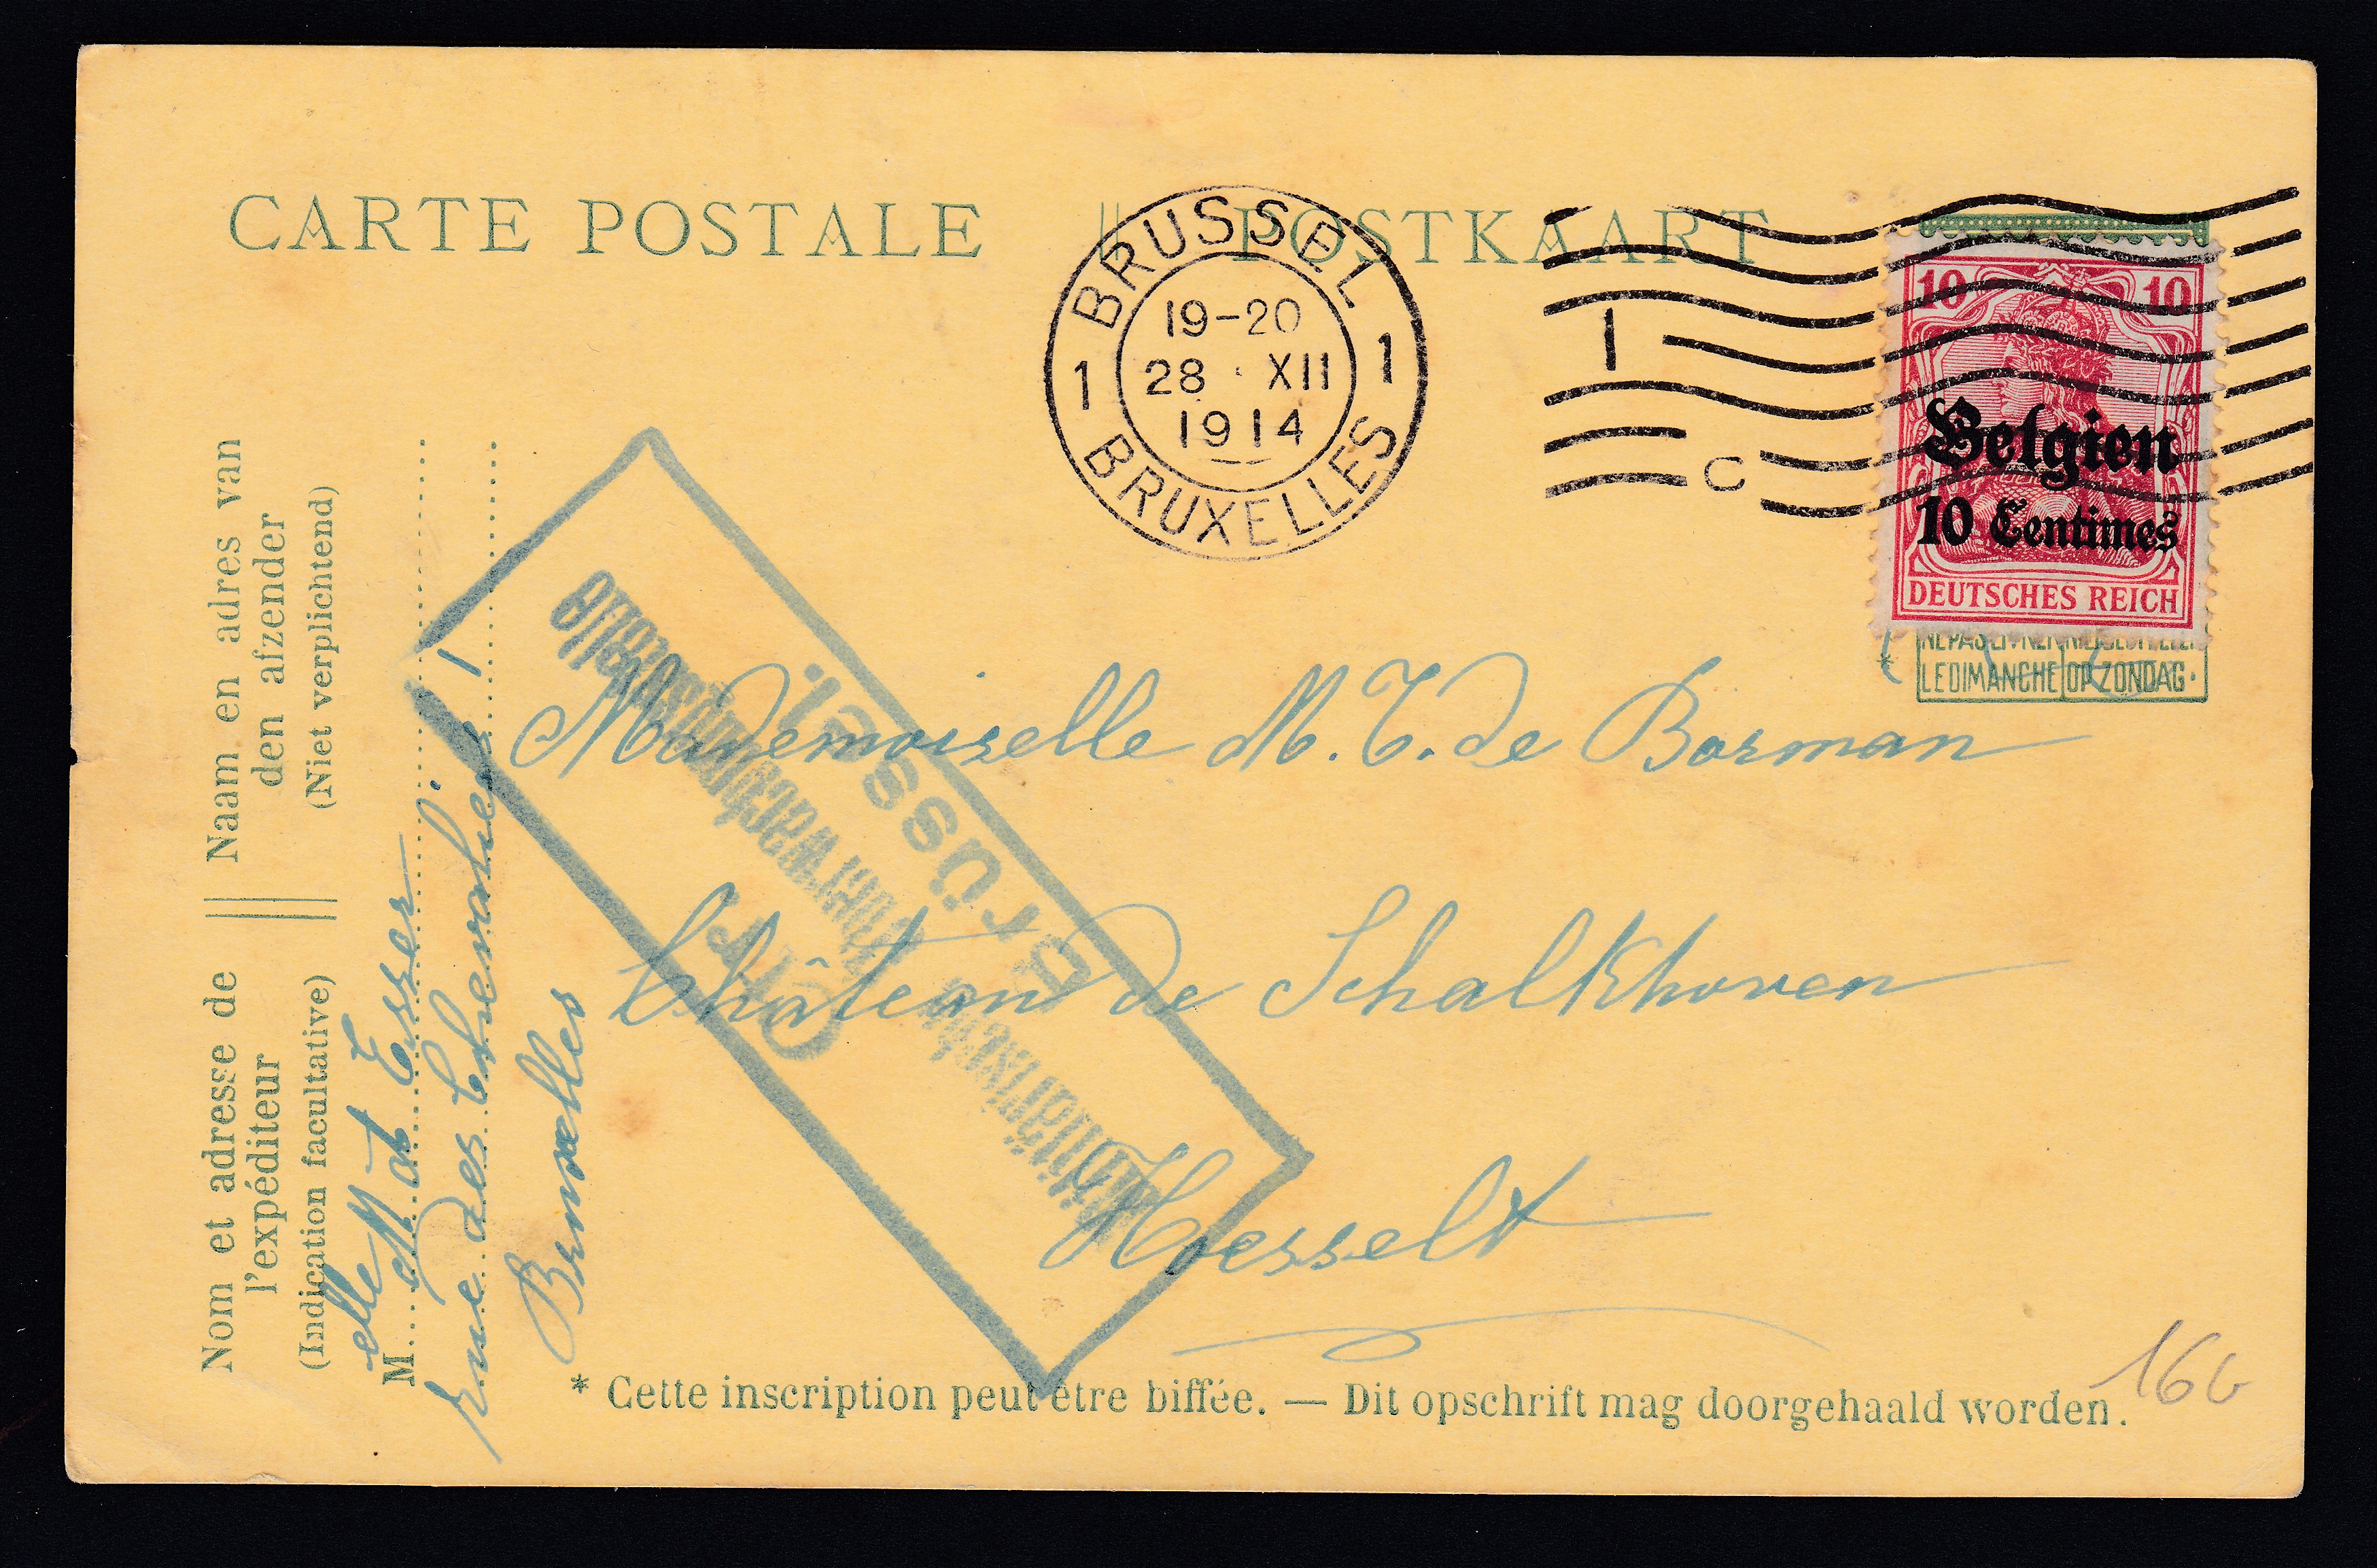 CARTE POSTALE || POSTKAART
BRUSSEL
19-20
1 28 XII 1
1914
BRUXELLES
1
C
10 10
Belgien
10 Centimes
DEUTSCHES REICH
LE DIMANCHE OP ZONDAG.
*
Mademoiselle M. T. de Borman
Château de Schalkhoven
Hoesselt
Naam en adres van
den afzender
(Niet verplichtend)
Nom et adresse de
l'expéditeur
(Indication facultative)
M.elle
rue des Chevaliers
Bruxelles
Militärische
Überwachungsstelle
Brüssel.
* Cette inscription peut être biffée. — Dit opschrift mag doorgehaald worden.